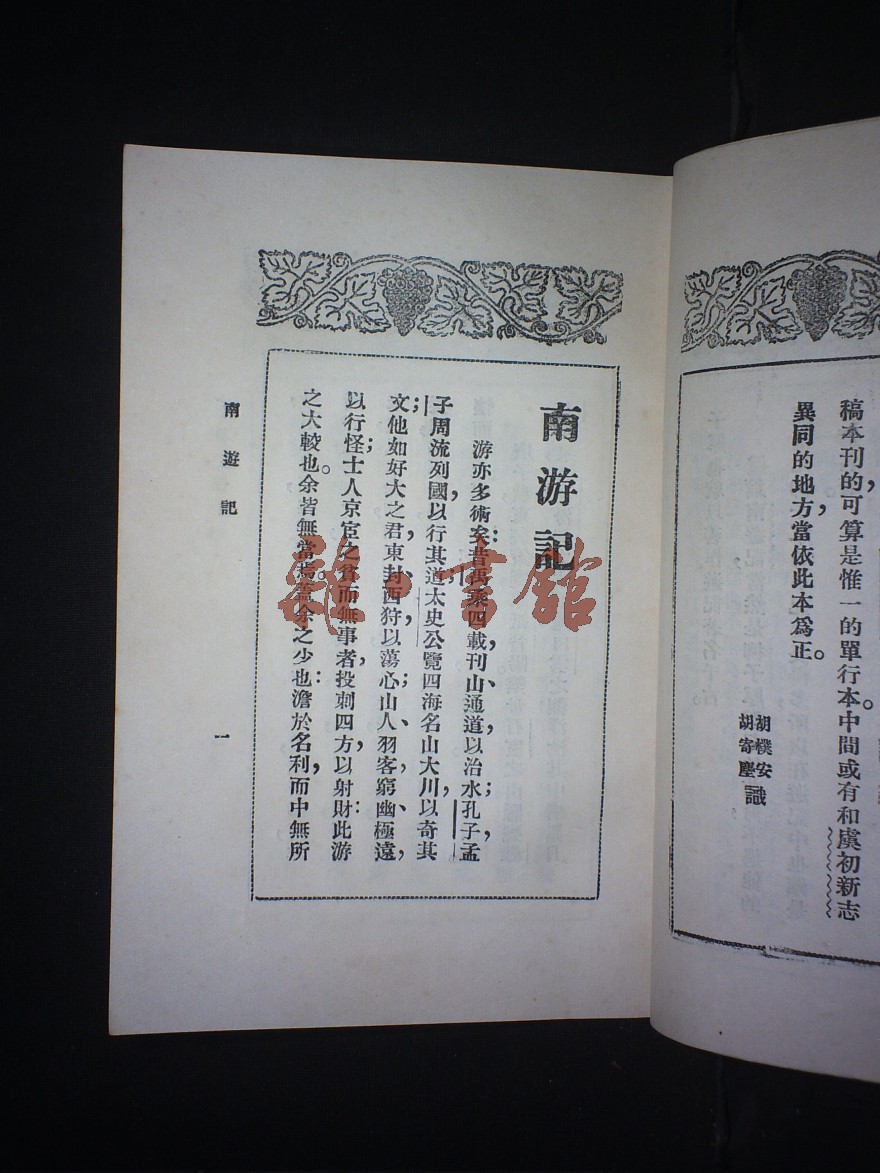 稿本刊的可算是惟一的單行本。中間或有和虞初新志
異同的地方當依此本爲正。
胡樸安
胡寄塵 識
南游記
游亦多術矣：昔禹乘四載，刊山通道以治水；孔子孟
子周流列國，以行其道；太史公覽四海名山大川，以奇其
文；他如好大之君，東封西狩以蕩心；山人羽客，窮幽極遠，
以行怪；士人京宦之貧而無事者，投刺四方，以射財；此游
之大較也。余皆無當焉。蓋余之少也，澹於名利，而中無所
南遊記
一
雜·書館